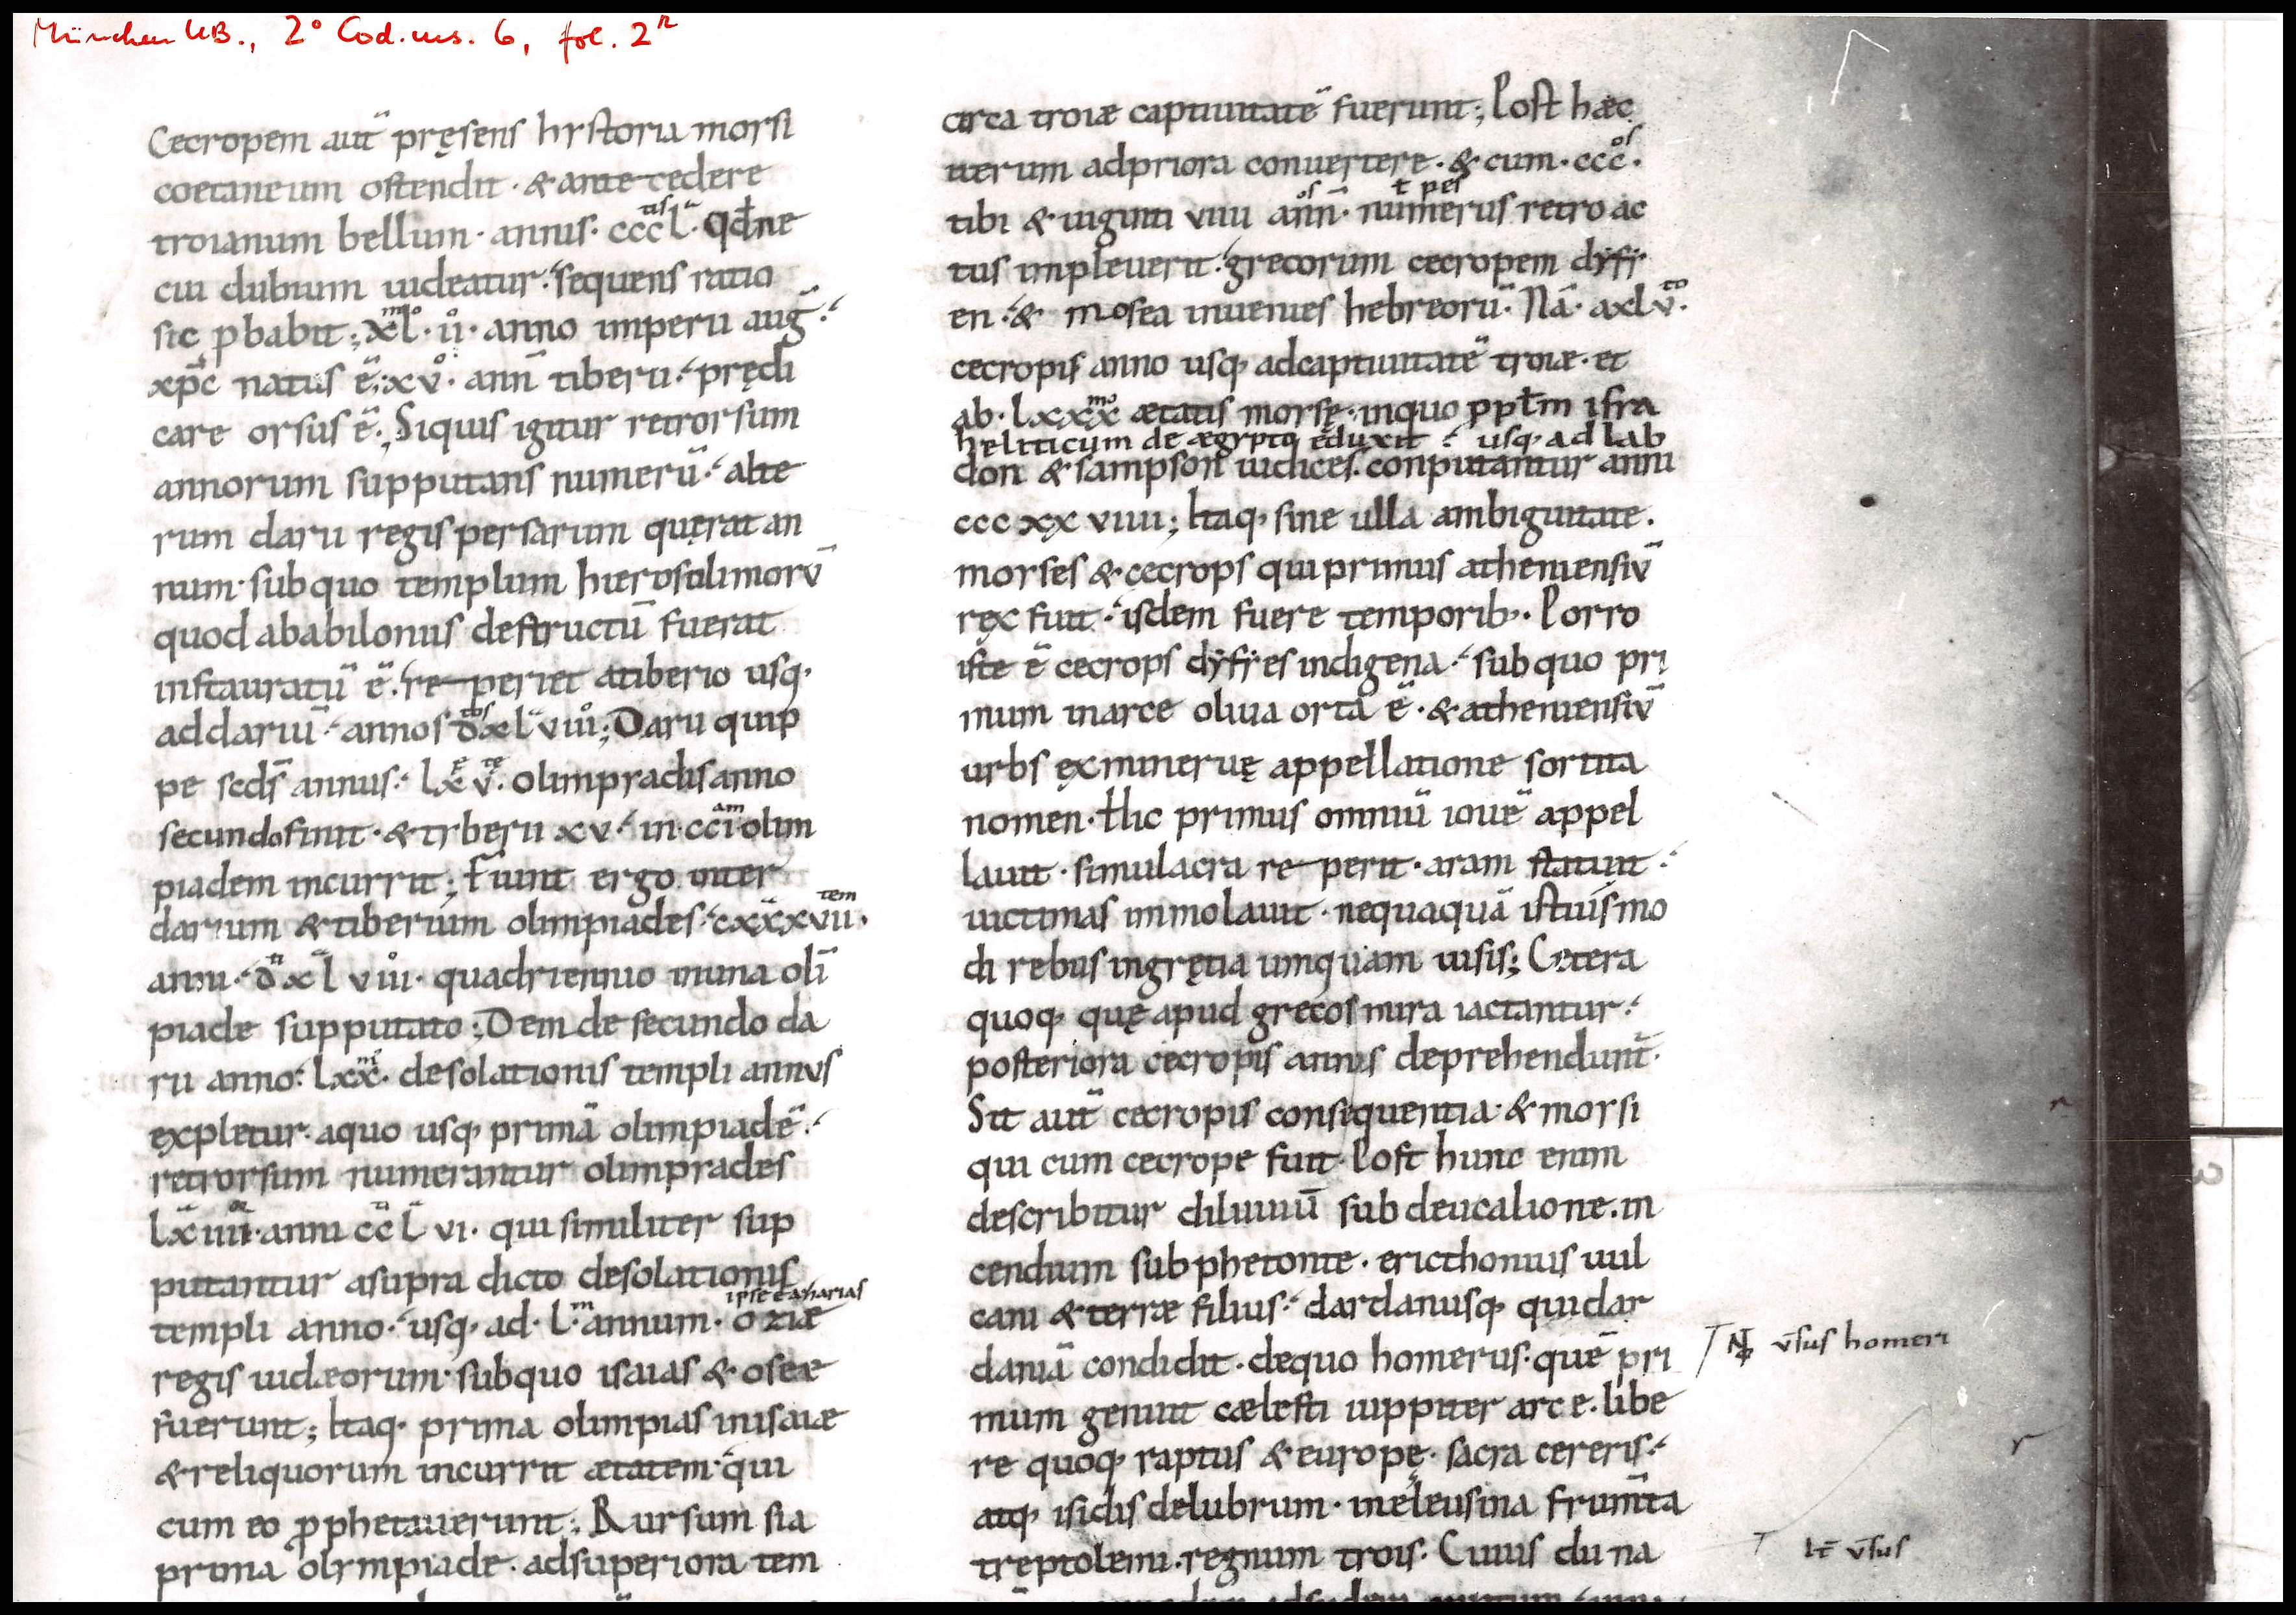 München UB., 2° Cod. ms. 6, fol. 2r
Cecropem aut̄ pręsens hystoria moysi
coetaneum ostendit · & ante cedere
troianum bellum · annis · ccctisl · qd̄ ne
cui dubium uideatur · sequens ratio
sic pbabit ; xlmo · ii̊ · anno imperii auḡ ·
xp̄c natus ē ; xv̊ · ann̄ tiberii · prędi
care orsus ē · Siquis igitur retrorsum
annorum supputans numerū · alte
rum darii regis persarum quęrat an
num · sub quo templum hierosolimorū
quod ababiloniis destructū fuerat
instauratū ē · re periet atiberio usq;
ad dariū · annos dtosxlviii̊ ; Darii quip
pe scd̄s annus · lxv · olimpiadis anno
secundo finit · & tyberii xv · in cciam olim
piadem incurrit ; Fiunt ergo inter
darium & tiberium olimpiades · cxxxviitem ·
anni · d̄xlviii̊ · quadriennio in una oli
piade supputato ; Dem de secundo da
rii anno · lxxmo · desolationis templi annus
expletur · aquo usq; primā olimpiadē ·
retrorsum numerantur olimpiades
lxiiii · anni cc̄l vi · qui similiter sup
putantur asupra dicto desolationis
ipse & azarias
templi anno · usq; ad · lm · annum · oziæ
regis iudæorum · sub quo isaias & oseæ
fuerunt ; Itaq; prima olimpias in isaiæ
& reliquorum incurrit ætatem · qui
cum eo pphetauerunt ; Rursum si a
prima olympiade · ad superiora tem
circa troiæ captiuitatē fuerunt ; Post hæc
iterum ad priora conuertere · & cum · cccos ·
t pes
tibi & uiginti viiii annos · numerus retro ac
tus impleuerit · grecorum cecropem dyfy
en · & mosea inuenies hebreorū · Nā · axlvto ·
cecropis anno usq; ad captiuitatē troiæ · et
ab · lxxxmo ætatis moysę · in quo ppłm isra
heliticum de ægypto eduxit · usq; ad lab
don & sampson iudices · conputantur anni
cccxxviiii ; Itaq; sine ulla ambiguitate ·
moyses & cecrops qui primus atheniensiū
rex fuit · isdem fuere temporib; · Porro
iste ē cecrops dyfyes indigena · sub quo pri
mum in arce oliua orta ē · & atheniensiū
urbs ex mineruę appellatione sortita
nomen · Hic primus omniū iouē appel
lauit · simulacra re perit · aram statuit ·
uictimas immolauit · nequaquā istiusmo
di rebus in gręcia umquam uisis ; Cetera
quoq; quę apud grecos mira iactantur ·
posteriora cecropis annis deprehendunt̄ ·
Sit aut̄ cecropis consequentia · & moysi
qui cum cecrope fuit · Post hunc enim
describitur diluuiū sub deucalione · in
cendium sub phetonte · ericthonius uul
cani & terræ filius · dardanusq; qui dar
daniā condidit · de quo homerus · quē pri
mum genuit cælesti iuppiter arce · libe
re quoq; raptus & europę · sacra cereris ·
atq; isidis delubrum · in eleusina frum̄ta
treptolemi · regnum trois · Cuius diu na
v̄sus homeri
It̄ v̄sus